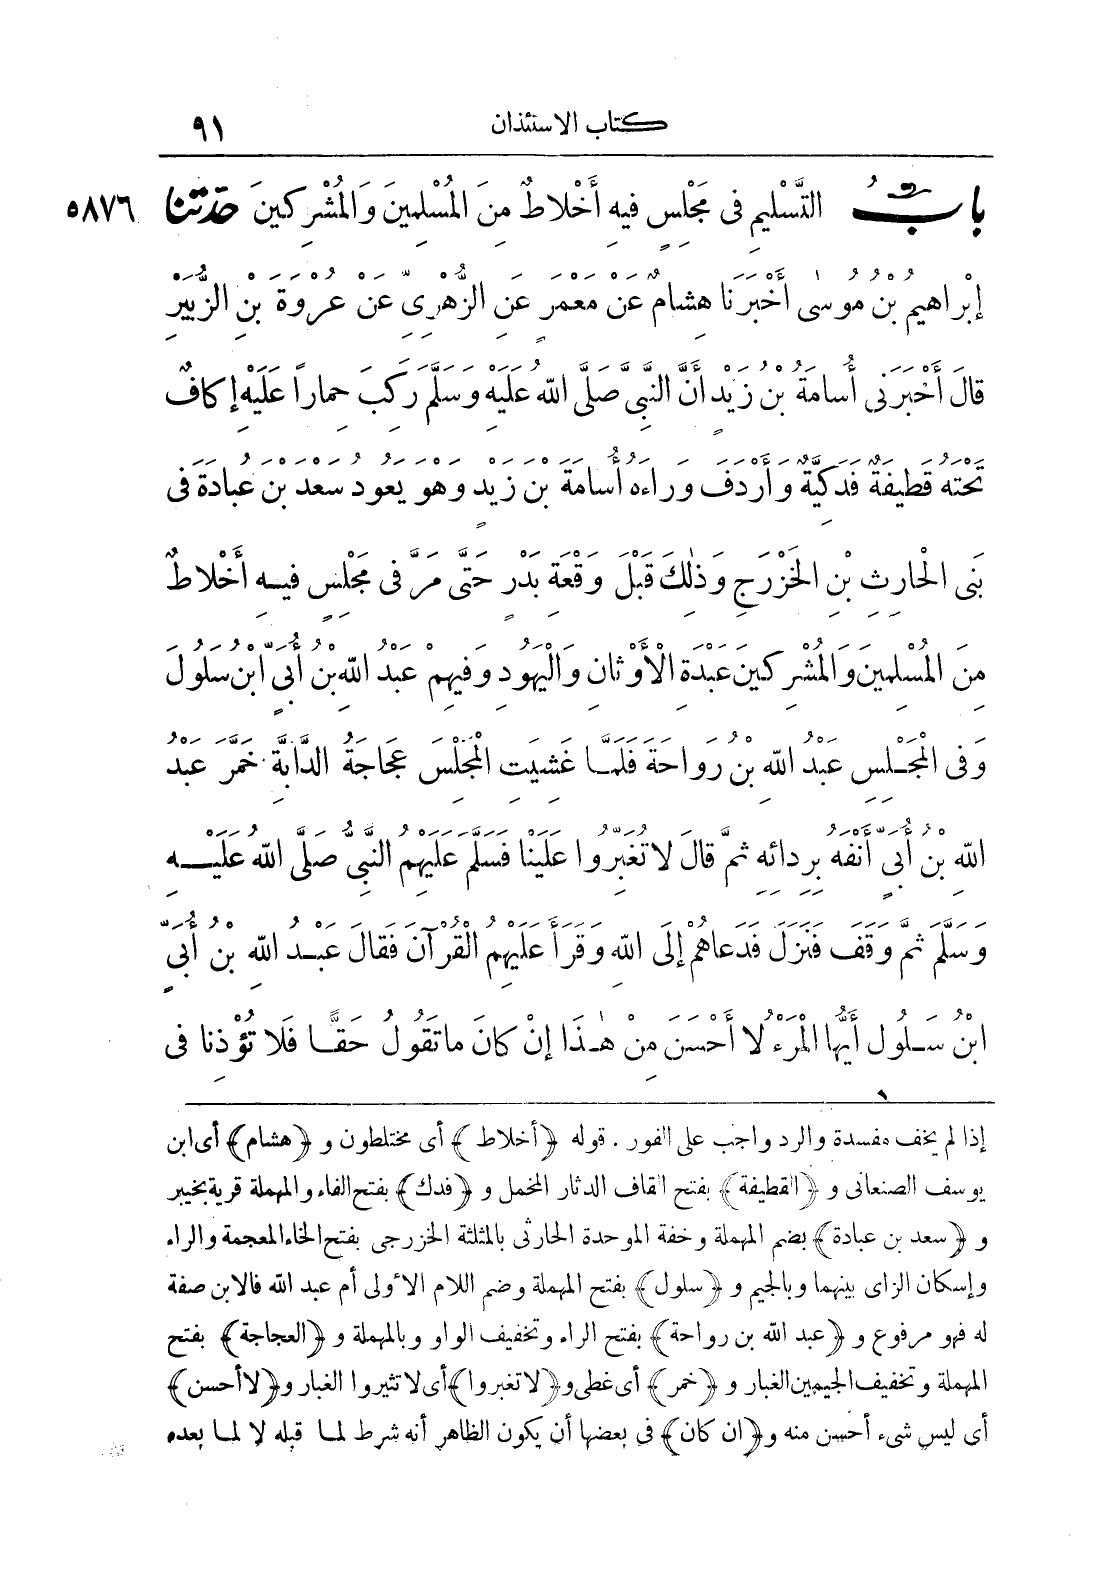 كتاب الاستئذان ٩١
بابُ التَّسْلِيمِ فِى مَجْلِسٍ فِيهِ أَخْلَاطٌ مِنَ الْمُسْلِمِينَ وَالْمُشْرِكِينَ حَدَّثَنَا ٥٨٧٦
إِبْرَاهِيمُ بْنُ مُوسَى أَخْبَرَنَا هِشَامٌ عَنْ مَعْمَرٍ عَنِ الزُّهْرِىِّ عَنْ عُرْوَةَ بْنِ الزُّبَيْرِ
قَالَ أَخْبَرَنِى أُسَامَةُ بْنُ زَيْدٍ أَنَّ النَّبِىَّ صَلَّى اللهُ عَلَيْهِ وَسَلَّمَ رَكِبَ حِمَاراً عَلَيْهِ إِكَافٌ
تَحْتَهُ قَطِيفَةٌ فَدَكِيَّةٌ وَأَرْدَفَ وَرَاءَهُ أُسَامَةَ بْنَ زَيْدٍ وَهْوَ يَعُودُ سَعْدَ بْنَ عُبَادَةَ فِى
بَنِى الْحَارِثِ بْنِ الْخَزْرَجِ وَذٰلِكَ قَبْلَ وَقْعَةِ بَدْرٍ حَتَّى مَرَّ فِى مَجْلِسٍ فِيهِ أَخْلَاطٌ
مِنَ الْمُسْلِمِينَ وَالْمُشْرِكِينَ عَبَدَةِ الْأَوْثَانِ وَالْيَهُودِ وَفِيهِمْ عَبْدُ اللهِ بْنُ أُبَىٍّ ابْنُ سَلُولَ
وَفِى الْمَجْلِسِ عَبْدُ اللهِ بْنُ رَوَاحَةَ فَلَمَّا غَشِيَتِ الْمَجْلِسَ عَجَاجَةُ الدَّابَّةِ خَمَّرَ عَبْدُ
اللهِ بْنُ أُبَىٍّ أَنْفَهُ بِرِدَائِهِ ثُمَّ قَالَ لَا تُغَبِّرُوا عَلَيْنَا فَسَلَّمَ عَلَيْهِمُ النَّبِىُّ صَلَّى اللهُ عَلَيْهِ
وَسَلَّمَ ثُمَّ وَقَفَ فَنَزَلَ فَدَعَاهُمْ إِلَى اللهِ وَقَرَأَ عَلَيْهِمُ الْقُرْآنَ فَقَالَ عَبْدُ اللهِ بْنُ أُبَىٍّ
ابْنُ سَلُولَ أَيُّهَا الْمَرْءُ لَا أَحْسَنَ مِنْ هٰذَا إِنْ كَانَ مَا تَقُولُ حَقًّا فَلَا تُؤْذِنَا فِى
إذا لم يخف مفسدة والرد واجب على الفور . قوله ﴿أخلاط﴾ أى مختلطون و ﴿هشام﴾ أى ابن
يوسف الصنعانى و ﴿القطيفة﴾ بفتح القاف الدثار المخمل و ﴿فدك﴾ بفتح الفاء والمهملة قرية بخيبر
و ﴿سعد بن عبادة﴾ بضم المهملة وخفة الموحدة الحارثى بالمثلثة الخزرجى بفتح الخاء المعجمة والراء
وإسكان الزاى بينهما وبالجيم و ﴿سلول﴾ بفتح المهملة وضم اللام الأولى أم عبد الله فالابن صفة
له فهو مرفوع و ﴿عبد الله بن رواحة﴾ بفتح الراء وتخفيف الواو وبالمهملة و ﴿العجاجة﴾ بفتح
المهملة وتخفيف الجيمين الغبار و ﴿خمر﴾ أى غطى و﴿لا تغبروا﴾ أى لا تثيروا الغبار و﴿لا أحسن﴾
أى ليس شىء أحسن منه و﴿ان كان﴾ فى بعضها أن يكون الظاهر أنه شرط لما قبله لا لما بعده